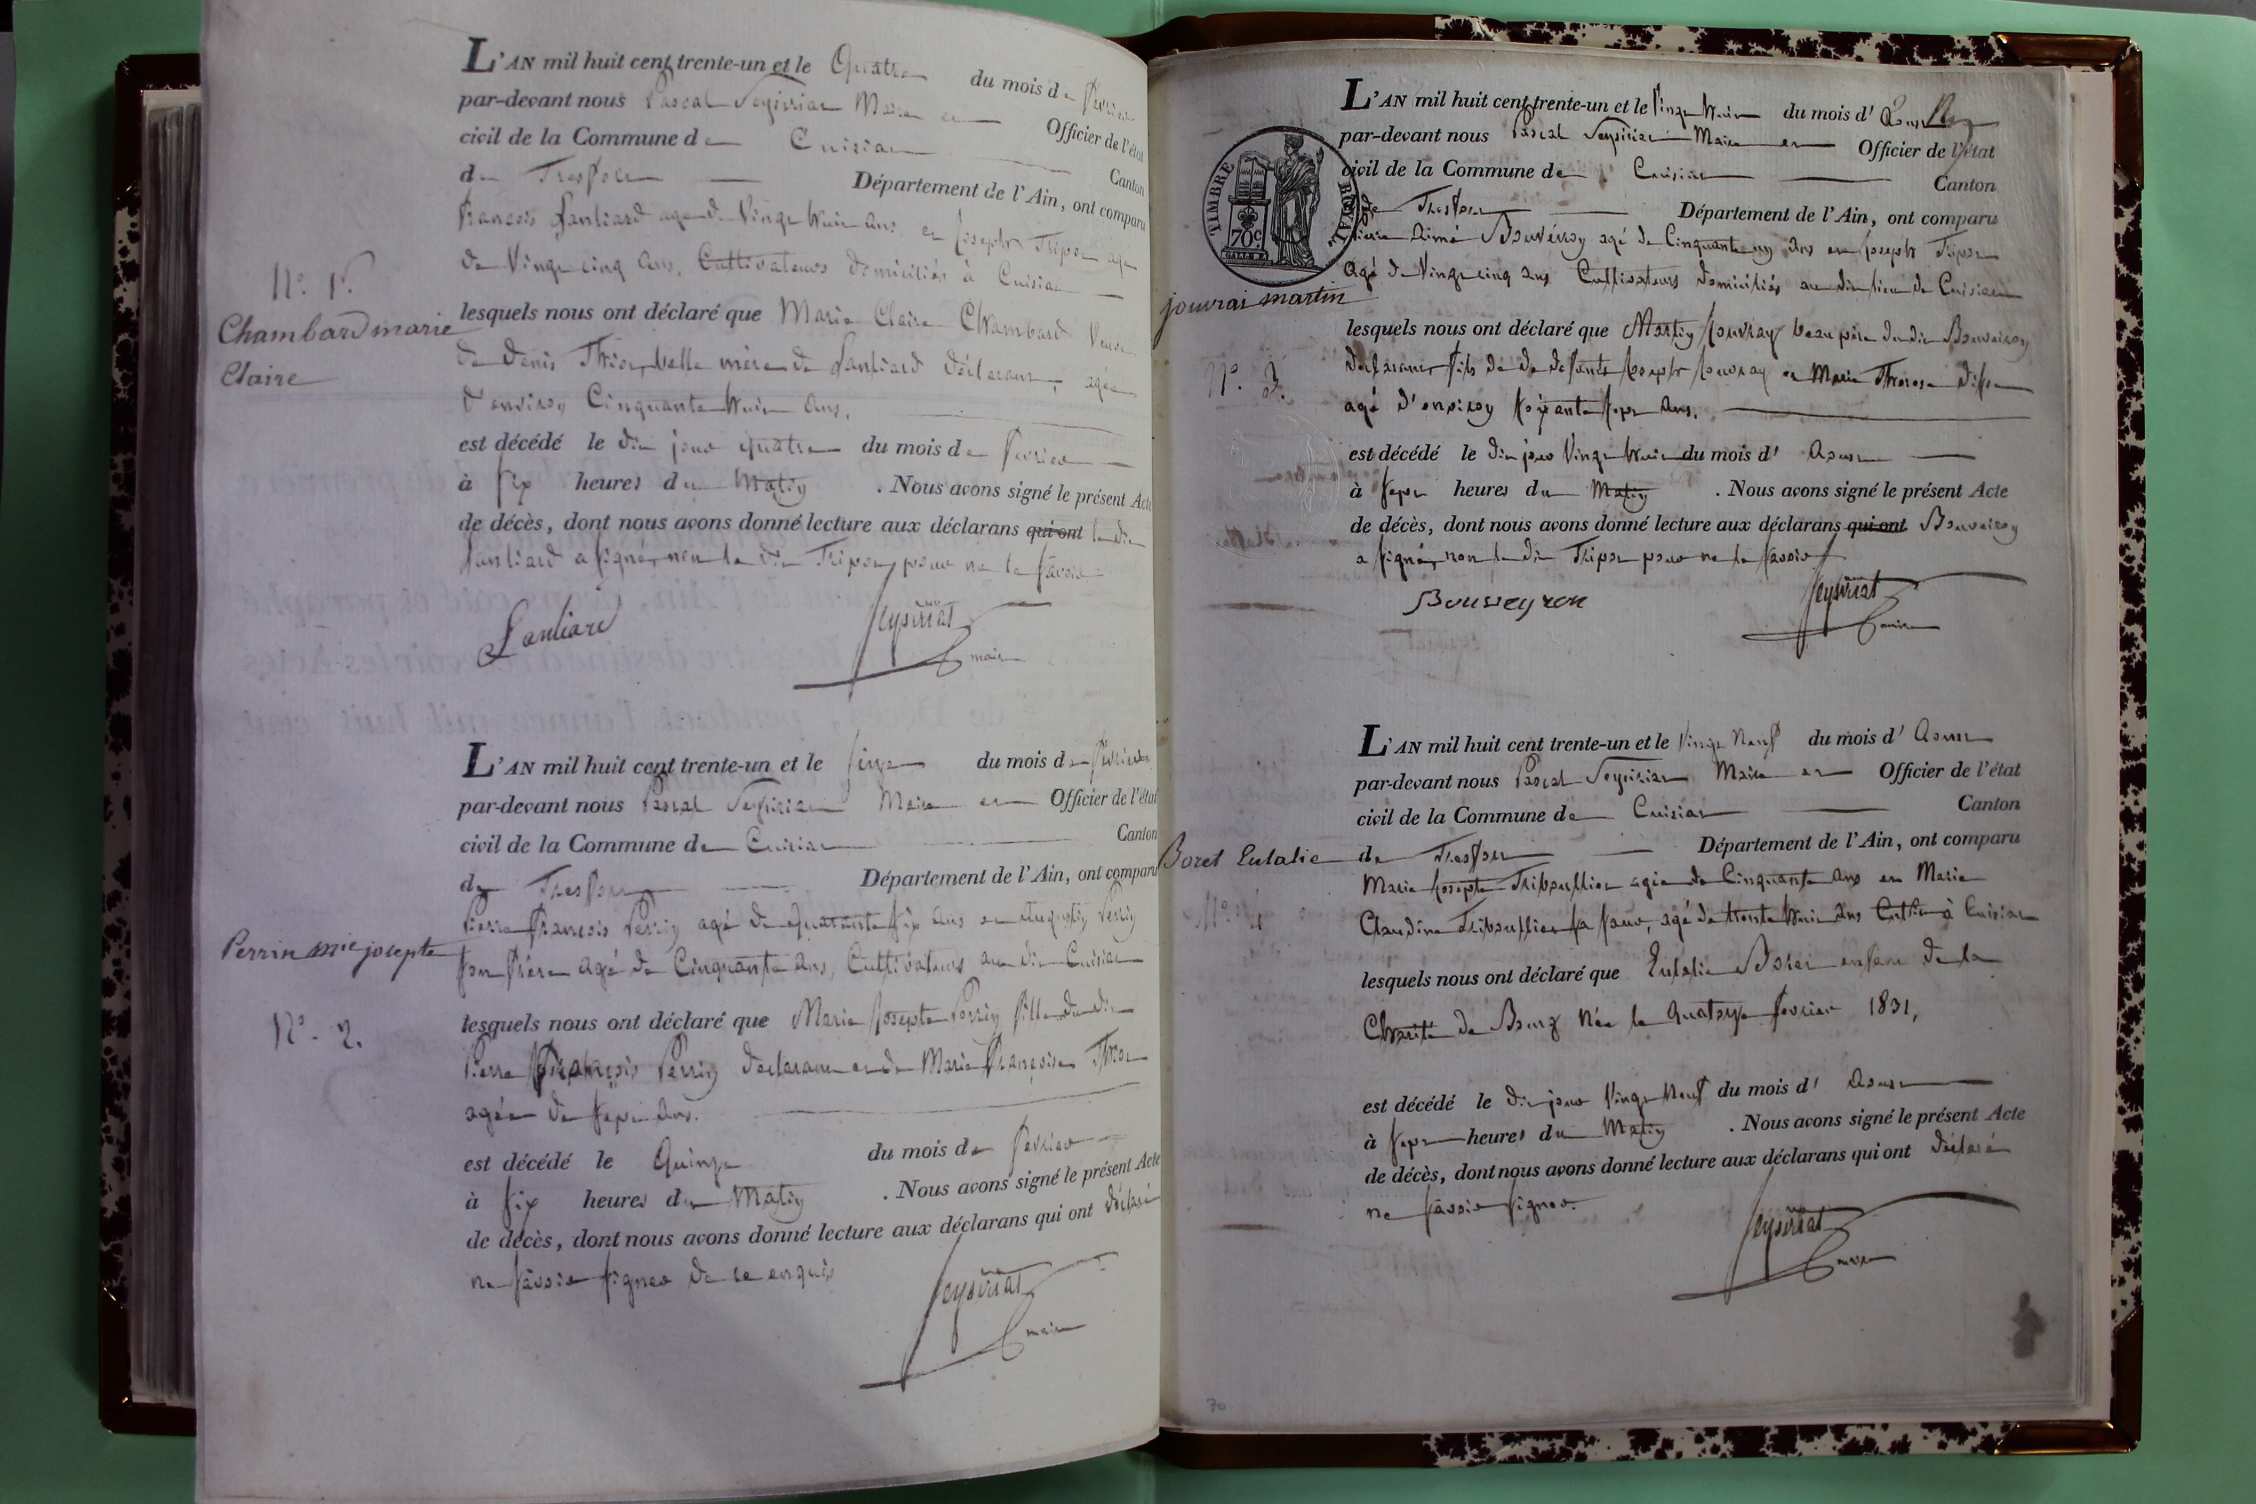 L'AN mil huit cent trente-un et le Quatre du mois de fevrier
par-devant nous Pascal Seyssiriat Maire et Officier de l'état
civil de la Commune de Cuisiat Canton
de Treffort Département de l'Ain, ont comparu
françois Lanliard agé de Vingt huit ans et joseph Tripoz agé
de Vingt cinq ans, Cultivateurs domiciliés à Cuisiat
N°. 1er.
Chambard marie
Claire
lesquels nous ont déclaré que Marie Claire Chambard Veuve
de Denis belle mère de Lanliard déclarant, agée
d'environ Cinquante huit ans.
est décédé le dit jour quatre du mois de fevrier
à six heures du Matin . Nous avons signé le présent Acte
de décès, dont nous avons donné lecture aux déclarans qui ont le dit
Lanliard a signé, non le dit Tripoz, pour ne le savoir
Lanliard Seyssiriat
maire
L'AN mil huit cent trente-un et le seize du mois de fevrier
par-devant nous Pascal Seyssiriat Maire et Officier de l'état
civil de la Commune de Cuisiat Canton
de Treffort Département de l'Ain, ont comparu
Pierre François Perrin agé de quarante six ans et augustin Perrin
Perrin mie josepte
son frère agé de Cinquante ans, Cultivateurs au dit Cuisiat
N°. 2.
lesquels nous ont déclaré que Marie Josepte Perrin fille du dit
Pierre François Perrin déclarant et de Marie Françoise
agée de sept ans.
est décédé le Quinze du mois de fevrier
à six heures du Matin . Nous avons signé le présent Acte
de décès, dont nous avons donné lecture aux déclarans qui ont déclaré
ne savoir signer de ce enquis
Seyssiriat
maire
L'AN mil huit cent trente-un et le Vingt huit du mois d'Aoust
par-devant nous Pascal Seyssiriat Maire et Officier de l'état
civil de la Commune de Cuisiat Canton
de Treffort Département de l'Ain, ont comparu
TIMBRE ROYAL
70c
Pierre Aimé Bouveiron agé de Cinquante un ans et joseph Tripoz
agé de Vingt cinq ans Cultivateurs domiciliés au dit lieu de Cuisiat
jouvrai martin
lesquels nous ont déclaré que Martin Jouvray beau père du dit Bouveiron
N°. 3.
déclarant fils de de defunts Joseph Jouvray et Marie Therese
agé d'environ soixante sept ans.
est décédé le dit jour Vingt huit du mois d'Aoust
à sept heures du Matin . Nous avons signé le présent Acte
de décès, dont nous avons donné lecture aux déclarans qui ont Bouveiron
a signé, non le dit Tripoz pour ne le savoir
Bouveyron Seyssiriat
maire
L'AN mil huit cent trente-un et le Vingt Neuf du mois d'Aoust
par-devant nous Pascal Seyssiriat Maire et Officier de l'état
civil de la Commune de Cuisiat Canton
Boret Eulalie
de Treffort Département de l'Ain, ont comparu
Marie Josepte Triboullier agée de Cinquante ans et Marie
N°. 4
Claudine Triboullier sa sœur, agé de trente huit ans à Cuisiat
lesquels nous ont déclaré que Eulalie Boret enfant de la
Charité de Bourg Née le Quatorze fevrier 1831,
est décédé le dit jour Vingt Neuf du mois d'Aoust
à sept heures du Matin . Nous avons signé le présent Acte
de décès, dont nous avons donné lecture aux déclarans qui ont déclaré
ne savoir signer.
Seyssiriat
maire
70